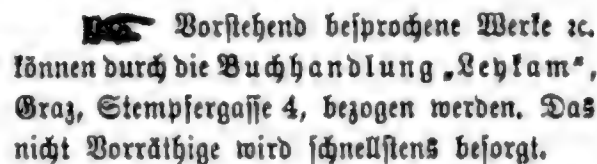 Vorstehend besprochene Werke ꝛc.
können durch die Buchhandlung „Leykam",
Graz, Stempfergasse 4, bezogen werden. Das
nicht Vorräthige wird schnellstens besorgt.